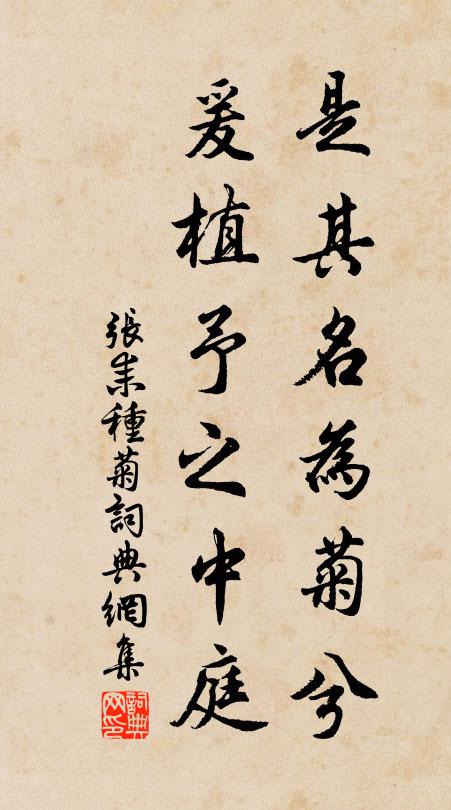 是其名為菊兮
爰植予之中庭
張耒種菊詞典網集
詞典
网印